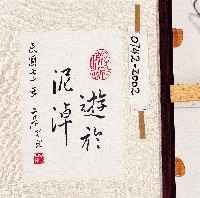 遊於
泥淖
民國七
0742-2002